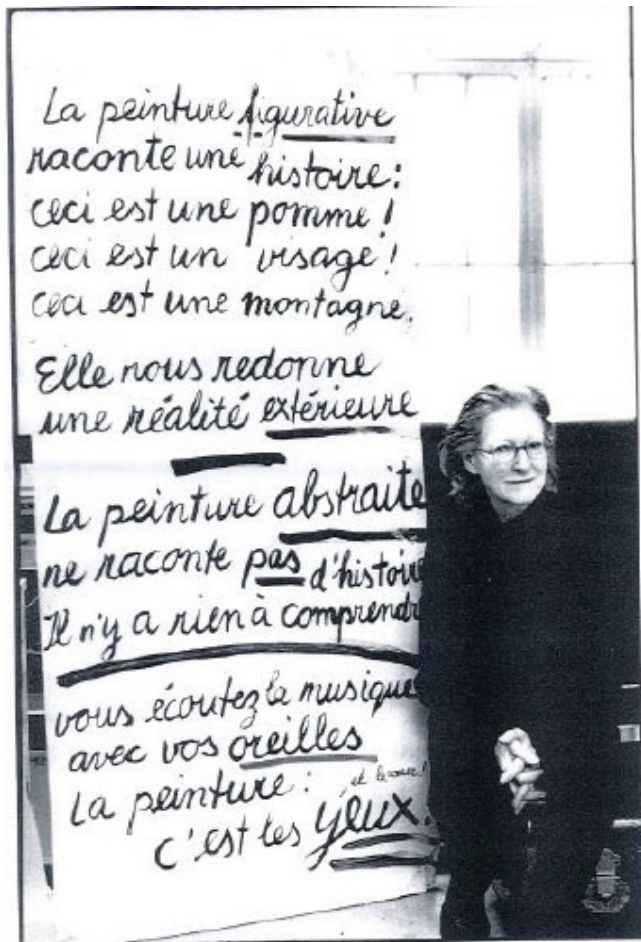 La peinture figurative
raconte une histoire:
ceci est une pomme!
ceci est un visage!
ceci est une montagne.
Elle nous redonne
une réalité extérieure
La peinture abstraite
ne raconte pas d'histoire
Il n'y a rien à comprendre
vous écoutez la musique
avec vos oreilles
La peinture: et le cœur!
c'est les yeux.